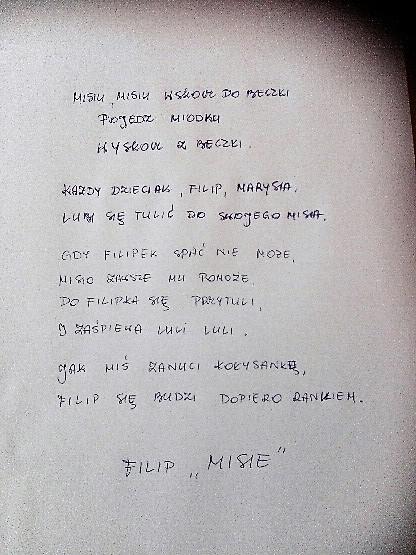 MISIU, MISIU WSKOCZ DO BECZKI
POJEDZ MIODKU
WYSKOCZ Z BECZKI.
KAŻDY DZIECIAK, FILIP, MARYSIA,
LUBI SIĘ TULIĆ DO SWOJEGO MISIA.
GDY FILIPEK SPAĆ NIE MOŻE,
MISIO ZAWSZE MU POMOŻE.
DO FILIPKA SIĘ PRZYTULI,
I ZAŚPIEWA LULI LULI.
JAK MIŚ ZANUCI KOŁYSANKĘ,
FILIP SIĘ BUDZI DOPIERO RANKIEM.
FILIP „MISIE"